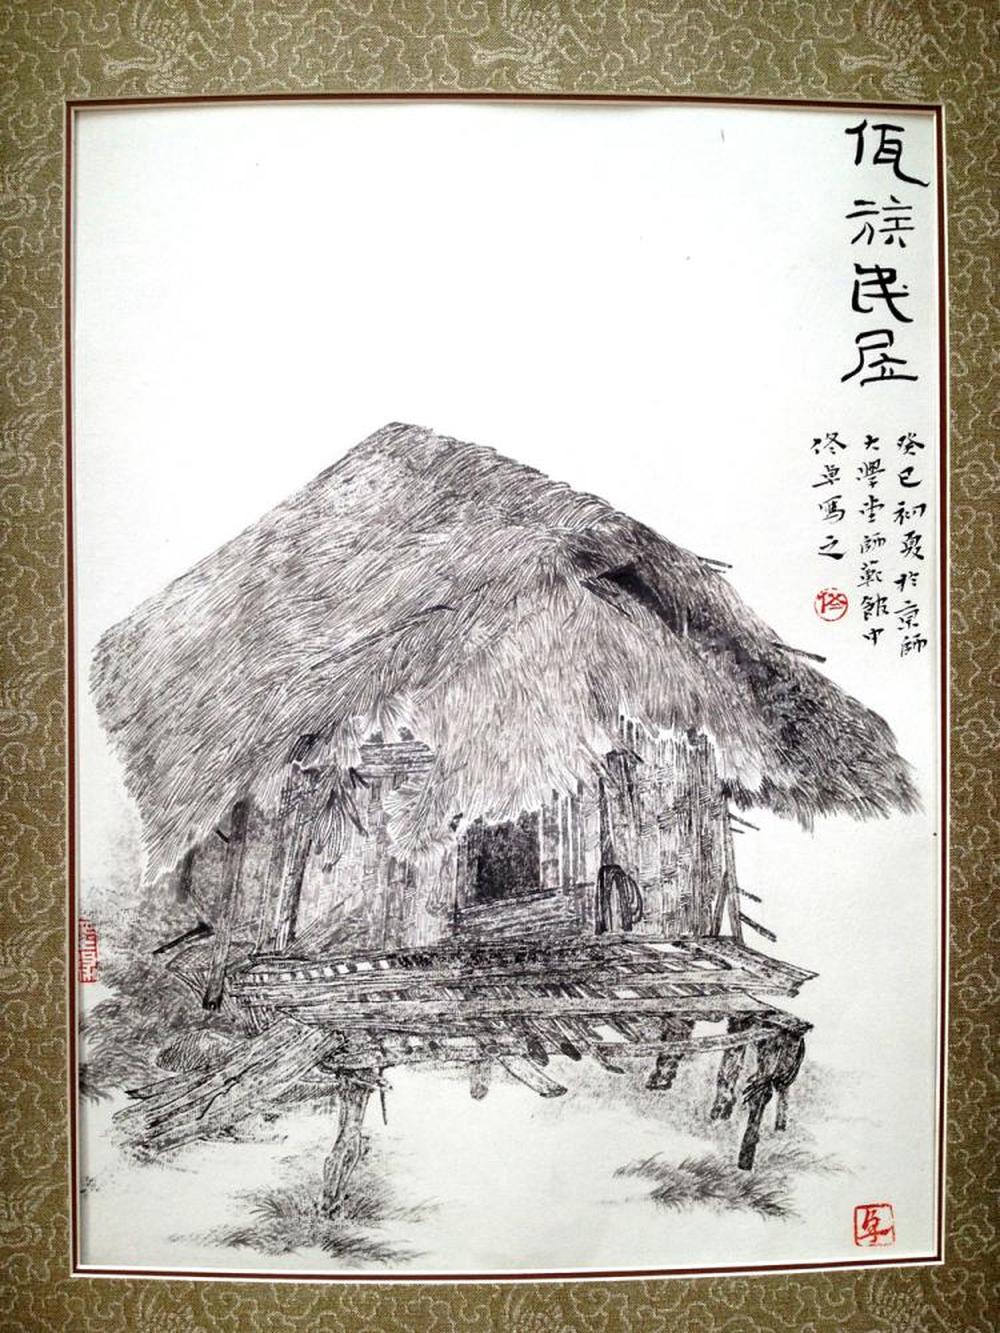 佤族民居
癸巳初夏於京師
大學堂師範館中
佟卓寫之
佟
卓